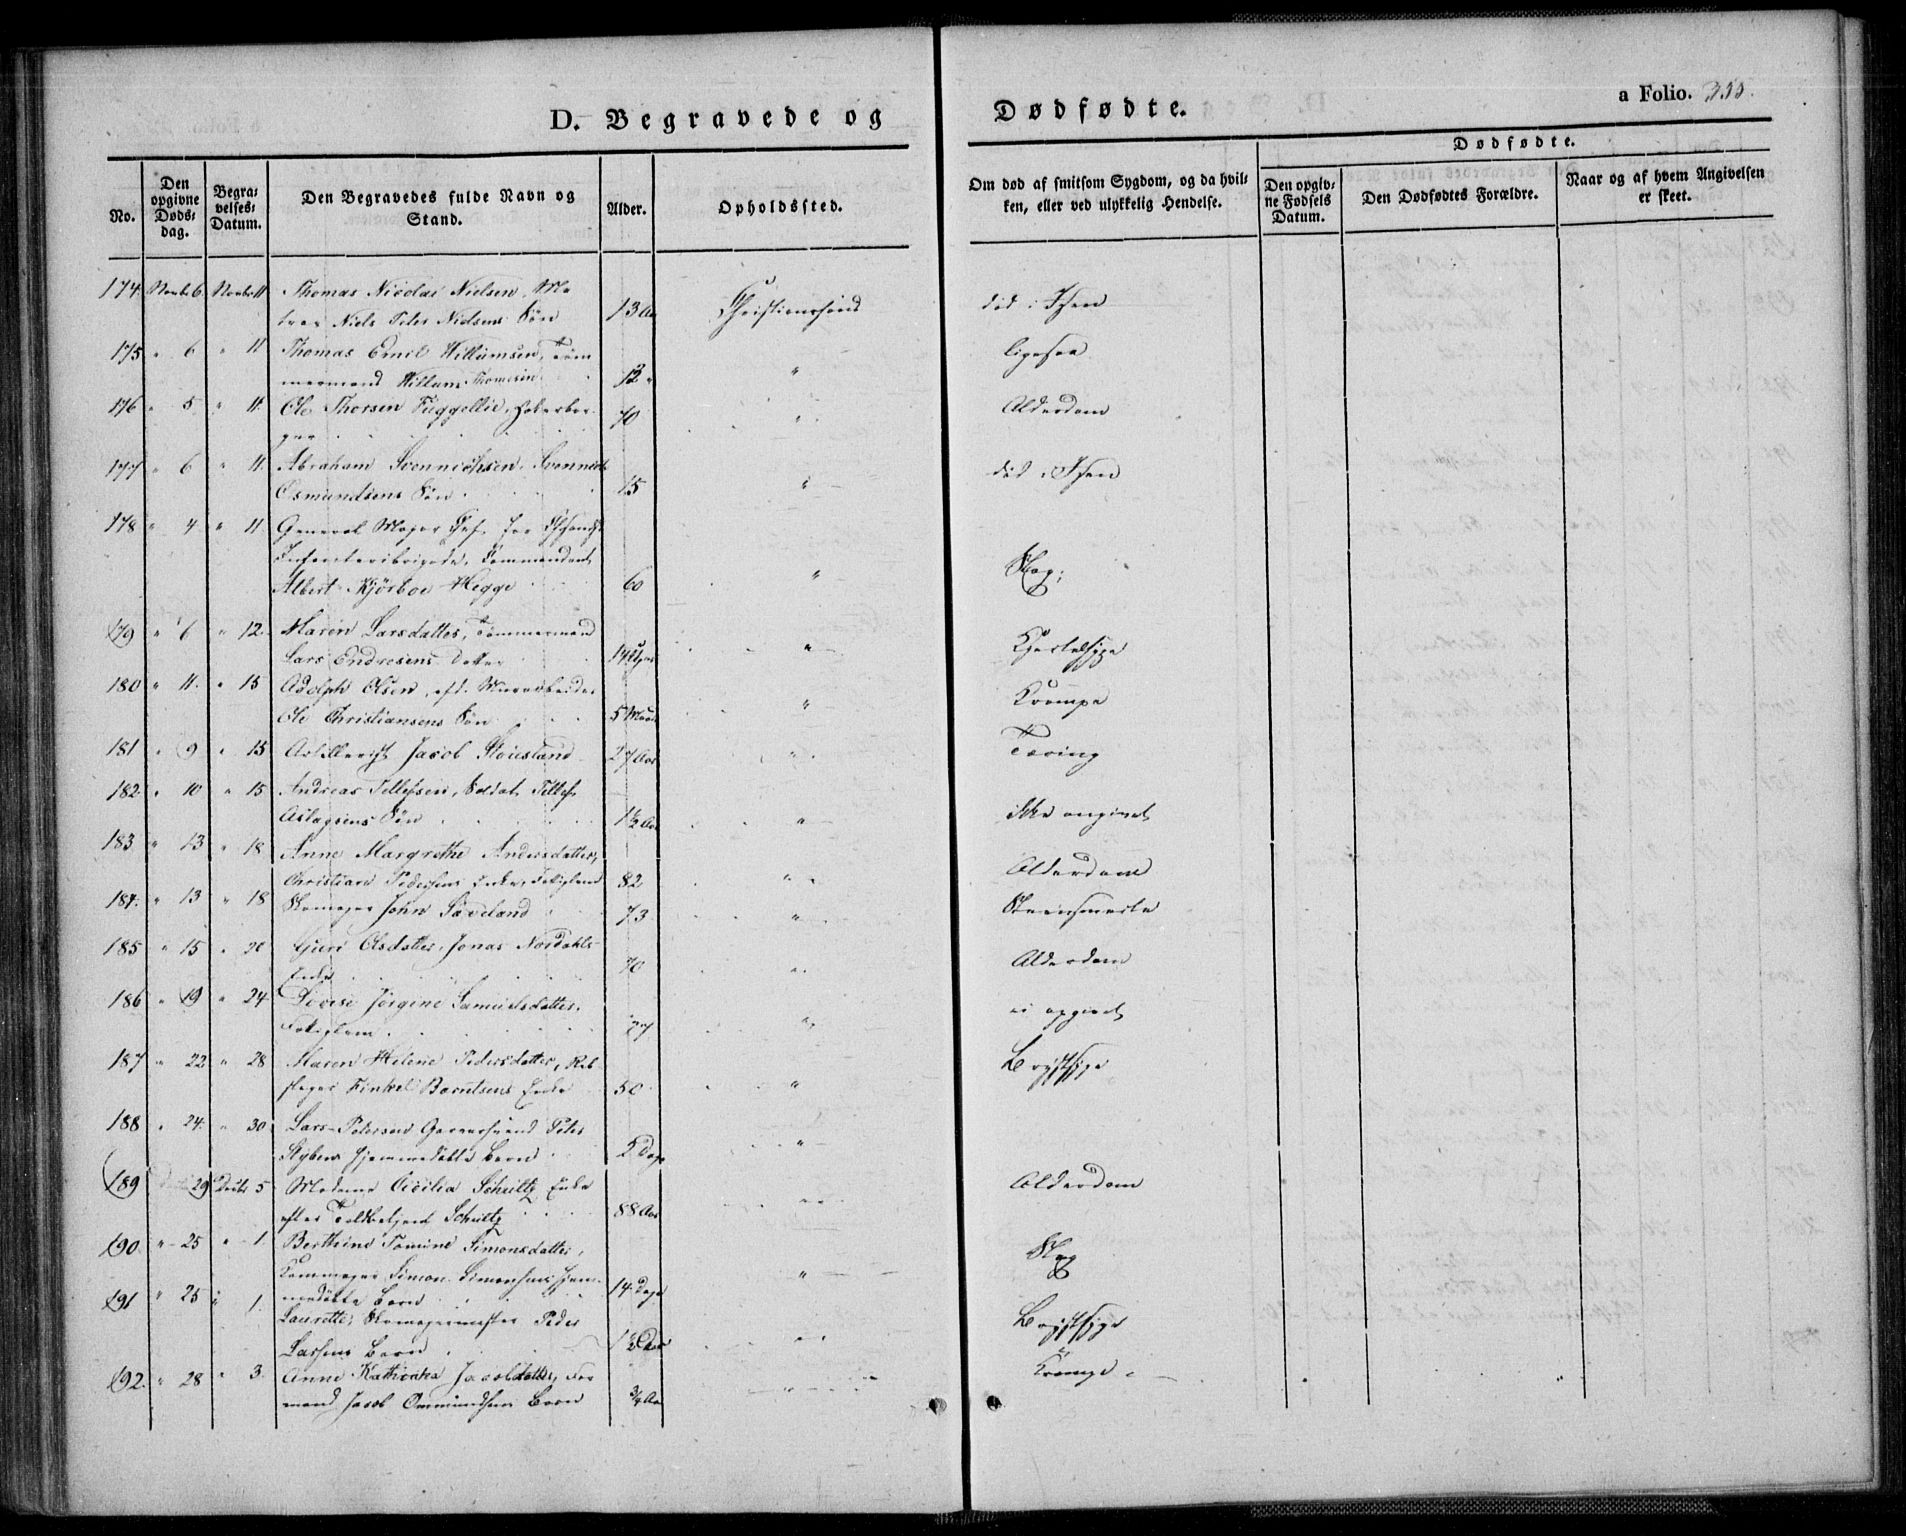 D. Begravede og Dødfødte.
a Folio.
No.
Den opgivne Døds-dag.
Begra-velses-Datum.
Den Begravedes fulde Navn og Stand.
Alder.
Opholdssted.
Om død af smitsom Sygdom, og da hvil-
ken, eller ved ulykkelig Hendelse.
Dødfødte.
Den opgiv-
ne Fødsels
Datum.
Den Dødfødtes Forældre.
Naar og af hvem Angivelsen
er skeet.
174 Novbr 6 Novbr 11 Thomas Nicolai Nielsen, Ma-
tros Niels Peter Nielsens Søn 13 Aar Christianssand død i Isen
175 " 6 " 11 Thomas Emil Willumsen, Tøm
mermand Willum Thomesen 12 " " ligesaa
176 " 5 " 11. Ole Thorsen 70 " Alderdom
177 " 6 " 11. Abraham Svennichsen, Svennich
Osmundsens Søn 15 " død i Isen
178 " 4 " 11 General Major Chef for
Infanteribrigade, Commandant
Albert Kjørboe Hegge 60 " Slag;
179 " 6 " 12. Maren Larsdatter, Tømmermand
Lars Endresens Datter 14 " Kjertelsyge
180 " 11. " 15 Adolph Olsen, afd. Murarbeider
Ole Christiansens Søn 5 Maan " Krampe
181 " 9 " 15 Artillerist Jacob 27 Aar " Tæring
182 " 10 " 15 Andreas Tellefsen, Soldat Tellef
Aslagsens Søn 1½ Aar " ikke angivet
183 " 13 " 18 Anne Margrethe Andersdatter,
Christian Pedersens Enke, Fattiglem 82 " Alderdom
184. " 13 " 18 Skomager John 73 "
185 " 15 " 20 Guri Olsdatter, Jonas Nordahls
Enke 70 " Alderdom
186 " 19 " 24 Lovise Jørgine Samuelsdatter,
Fattiglem " ei opgivet
187 " 22 " 28 Maren Helene Pedersdatter, Reb
slager Tinkel Berntsens Enke 50 " Brystsyge
188 " 24. " 30 Lars Petersen Peter
hjemmedøbte Barn 5 Dage "
189 29 Decbr 5 Madame Cicilia Schultz Enke
efter Toldbetjent Schultz 88 Aar " Alderdom
190 " 25 " 1. Berthine Tomine Simonsdatter,
Simon Simonsens hjem-
medøbte Barn 14 Dage " Slag
191 " 25 " 1. Laurette, Skomagermester Peder
Larsens Barn " Brystsyge
192. " 28 " 3. Anne Kathrinka Jacobdatter, For
mand Jacob Ommundsens Barn ¾ Aar " Krampe